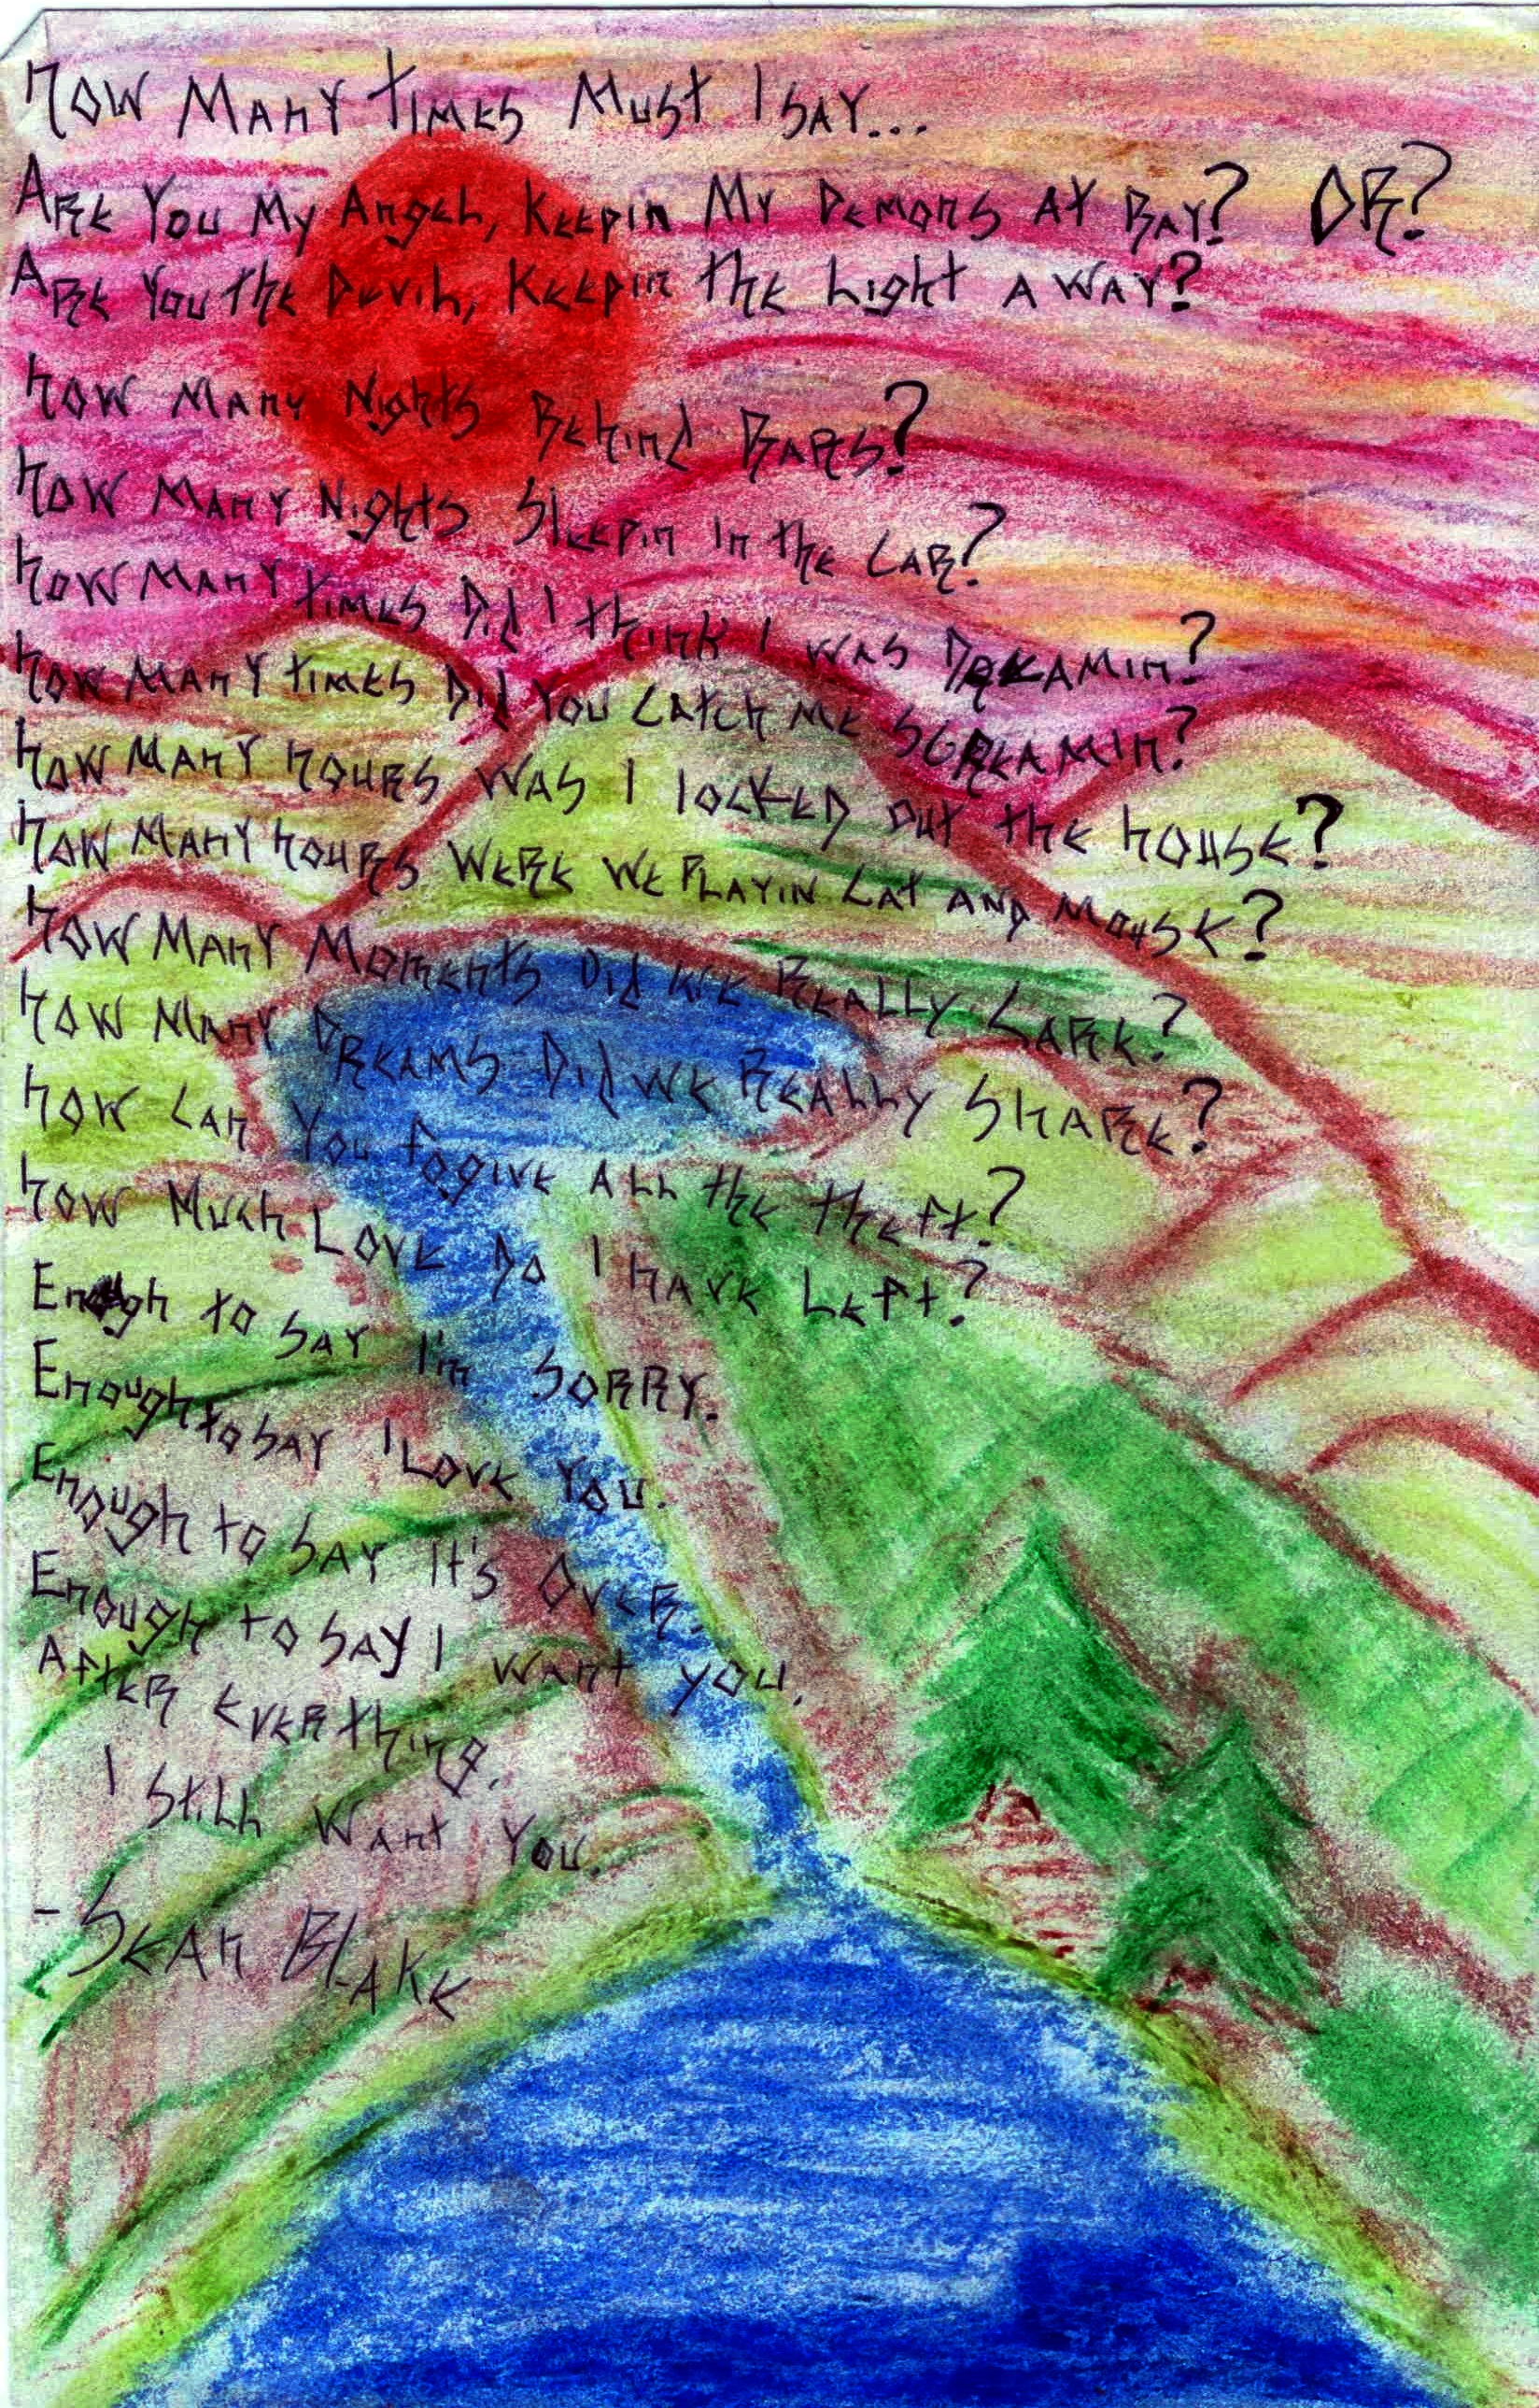 How Many Times Must I Say...
Are You My Angel, Keepin My Demons At Bay? OR?
Are You the Devil, Keepin the Light Away?
How Many Nights Behind Bars?
How Many Nights Sleepin in the Car?
How Many Times Did I think I was Dreamin?
How Many times Did You Catch Me Screamin?
How Many Hours Was I locked out the house?
How Many hours were we playin Cat and Mouse?
How Many Moments Did we Really Care?
How Many Dreams Did we Really Share?
How Can You fogive All the theft?
How Much Love Do I have Left?
Enough to say I'm Sorry.
Enough to say I Love You.
Enough to say It's Over.
Enough to say I want you.
After everthing.
I still Want You.
- Sean Blake